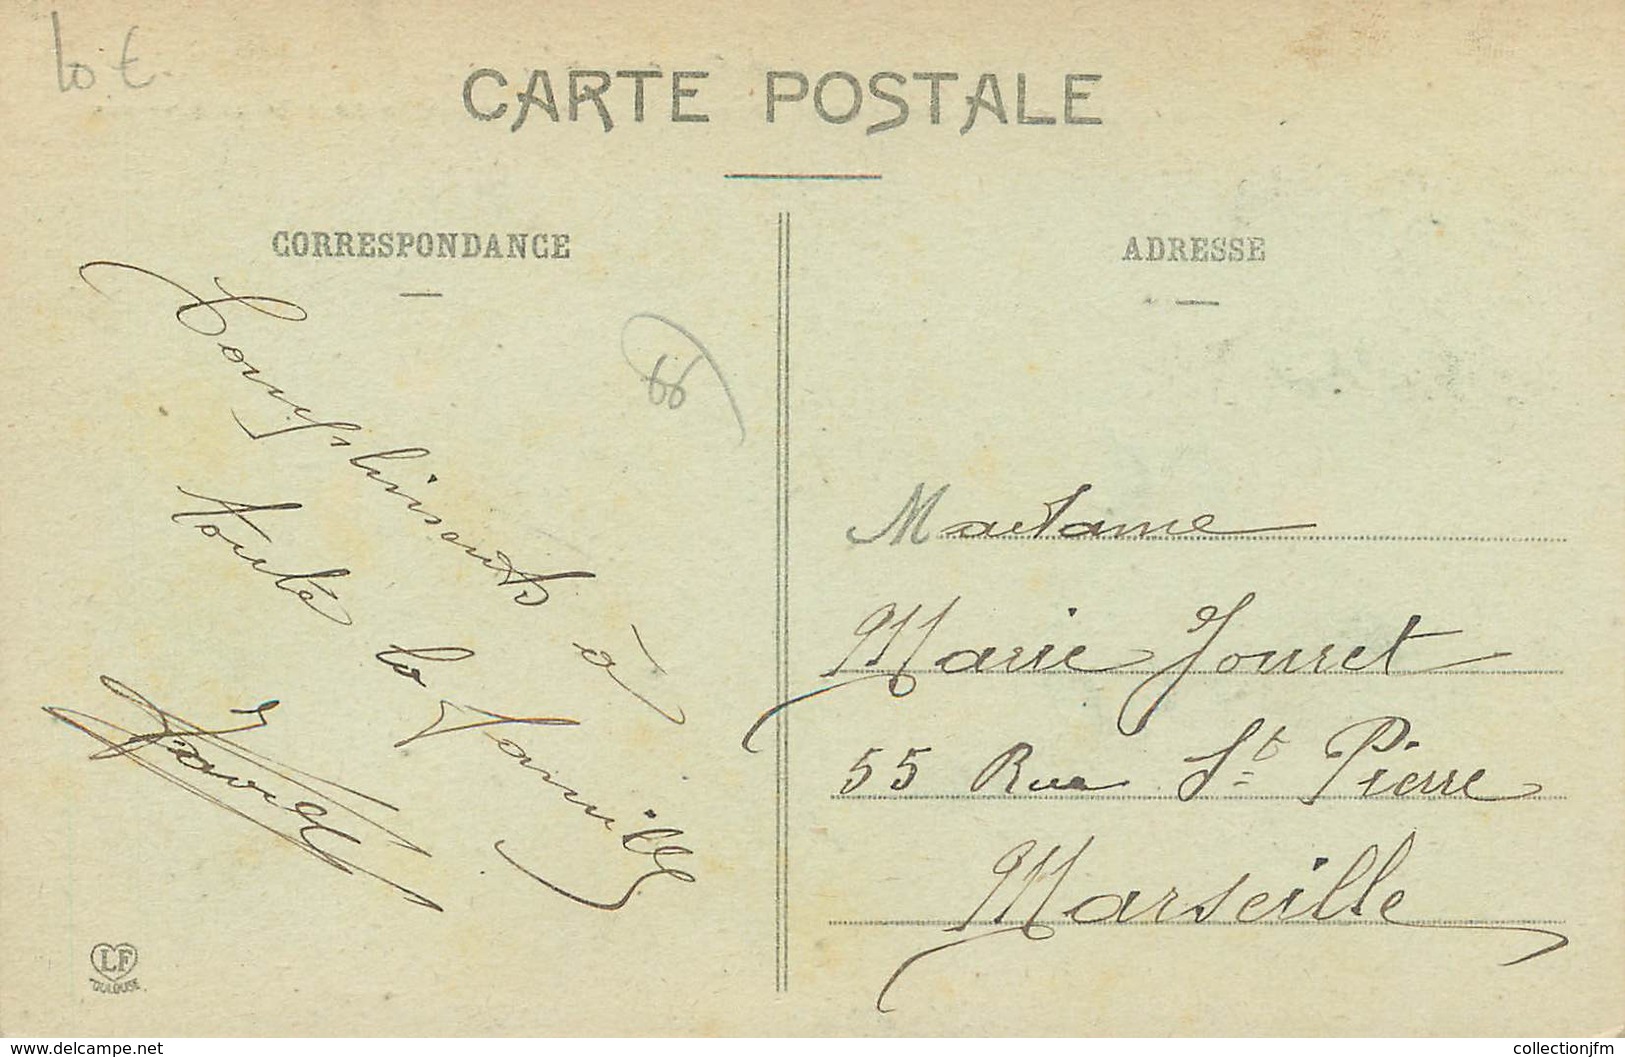 10 €
CARTE POSTALE
CORRESPONDANCE
ADRESSE
Compliments à
toute la famille
66
Madame
Marie Jouret
55 Rue St Pierre
Marseille
LF
TOULOUSE
www.delcampe.net
collectionjfm